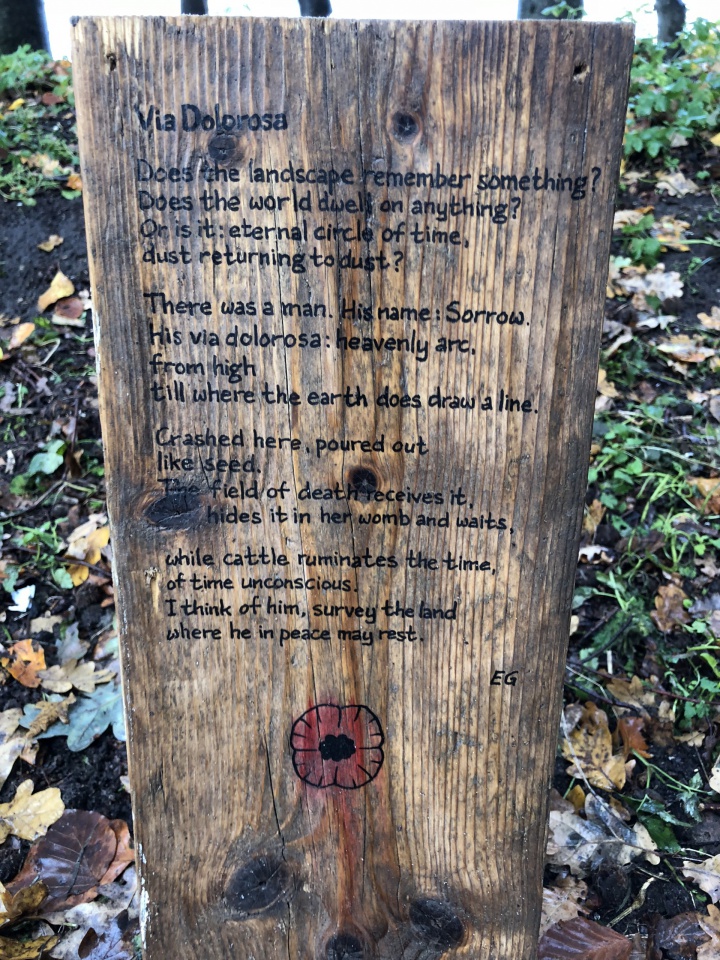 Via Dolorosa
Does the landscape remember something?
Does the world dwell on anything?
Or is it: eternal circle of time,
dust returning to dust?
There was a man. His name: Sorrow.
His via dolorosa: heavenly arc,
from high
till where the earth does draw a line.
Crashed here, poured out
like seed.
The field of death receives it,
hides it in her womb and waits,
while cattle ruminates the time,
of time unconscious.
I think of him, survey the land
where he in peace may rest.
EG